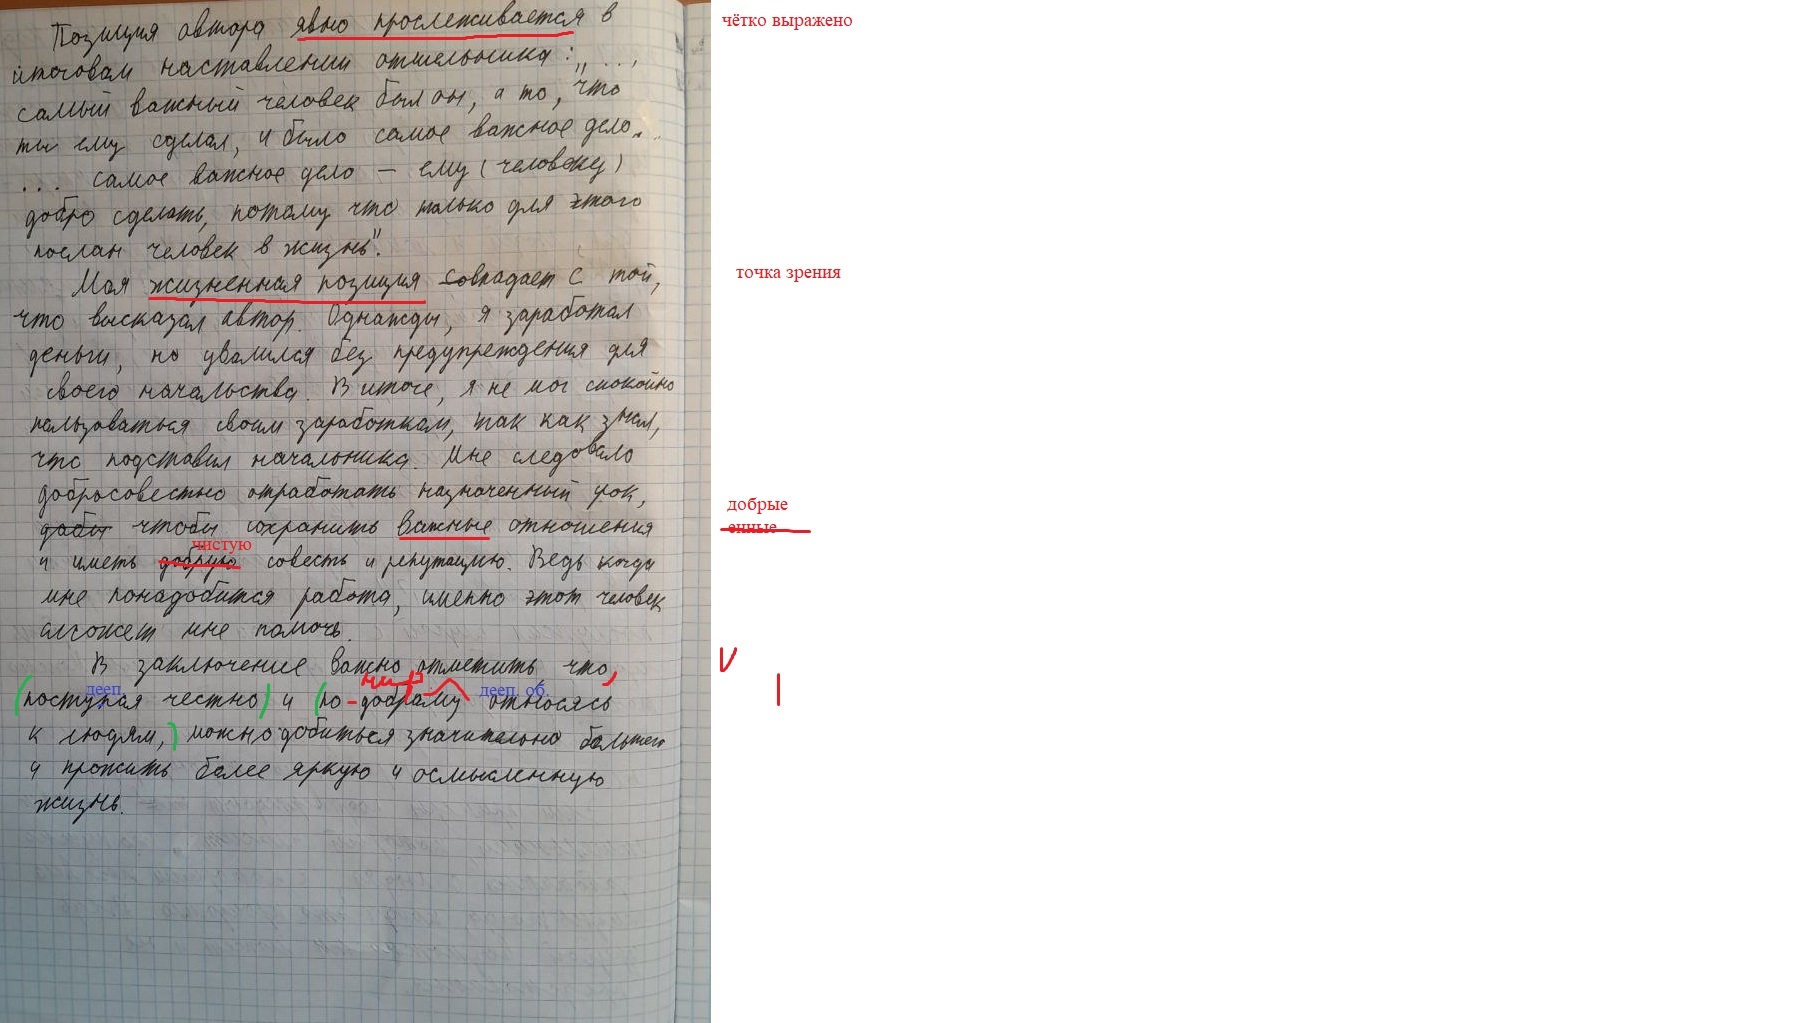 Позиция автора явно прослеживается в
чётко выражено
итоговом наставлении отшельника: „...,
самый важный человек был он, а то, что
ты ему сделал, и было самое важное дело...
... самое важное дело – ему (человеку)
добро сделать, потому что только для этого
послан человек в жизнь".
Моя жизненная позиция совпадает с той,
точка зрения
что высказал автор. Однажды, я заработал
деньги, но уволился без предупреждения для
своего начальства. В итоге, я не мог спокойно
пользоваться своим заработком, так как знал,
что подставил начальника. Мне следовало
добросовестно отработать назначенный срок,
добрые
дабы чтобы сохранить важные отношения
енные
чистую
и иметь добрую совесть и репутацию. Ведь когда
мне понадобится работа, именно этот человек
сможет мне помочь.
В заключение важно отметить, что,
V
дееп.
дееп. об.
поступая честно и по-доброму относясь
I
к людям, можно добиться значительно большего
и прожить более яркую и осмысленную
жизнь.